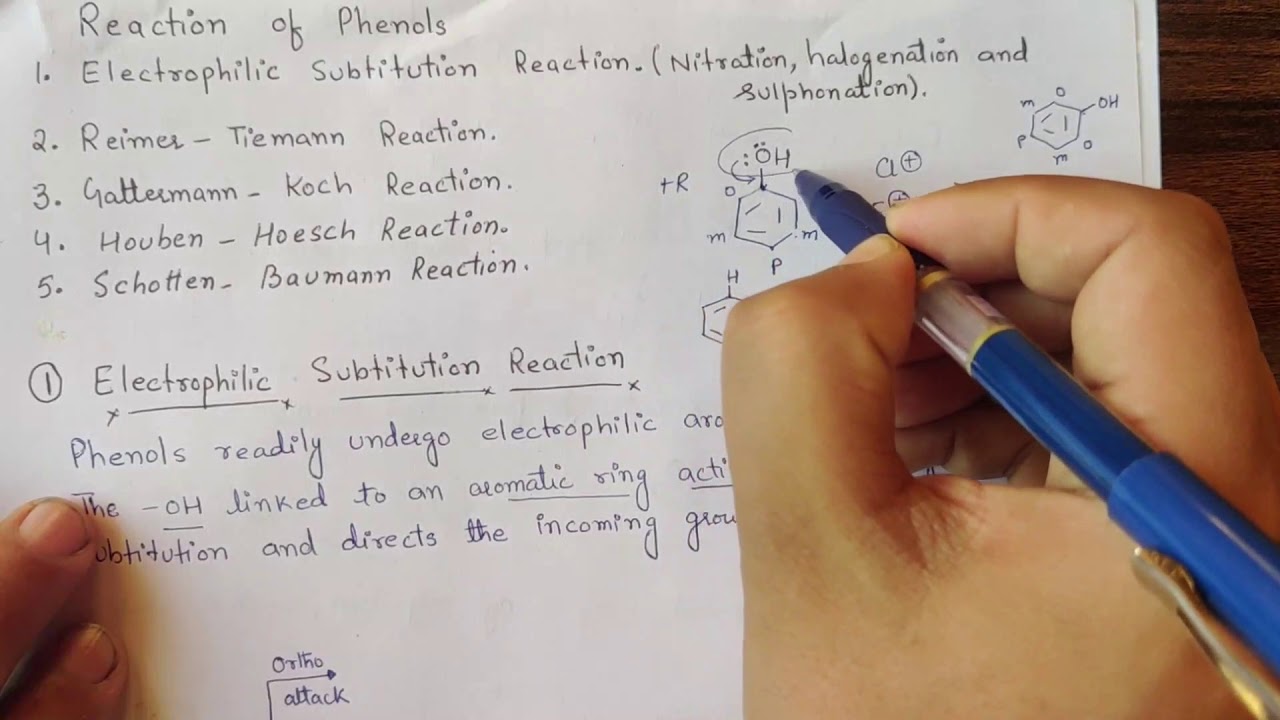 Reaction of Phenols
1. Electrophilic Subtitution Reaction. (Nitration, halogenation and
sulphonation).
2. Reimer - Tiemann Reaction.
3. Gattermann - Koch Reaction.
4. Houben - Hoesch Reaction.
5. Schotten - Baumann Reaction.
+R
:ÖH
o
m
m
P
H
Cl⊕
⊕
o
OH
m
P
o
m
① Electrophilic Subtitution Reaction
Phenols readily undergo electrophilic aro
The -OH linked to an aromatic ring acti
ubtitution and directs the incoming grou
Ortho
attack